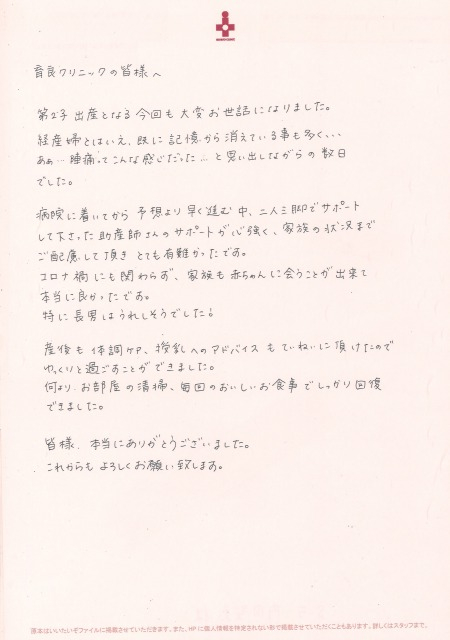 育良クリニックの皆様へ
第2子出産となる今回も大変お世話になりました。
経産婦とはいえ、既に記憶から消えている事も多く、、、
あぁ…陣痛ってこんな感じだった…と思い出しながらの数日
でした。
病院に着いてから予想より早く進む中、二人三脚でサポート
して下さった助産師さんのサポートが心強く、家族の状況まで
ご配慮して頂きとても有難かったです。
コロナ禍にも関わらず、家族も赤ちゃんに会うことが出来て
本当に良かったです。
特に長男はうれしそうでした!
産後も体調ケア、授乳へのアドバイスもていねいに頂けたので
ゆっくりと過ごすことができました。
何より、お部屋の清掃、毎回のおいしいお食事でしっかり回復
できました。
皆様、本当にありがとうございました。
これからもよろしくお願い致します。
原本はいいたいぞファイルに掲載させていただきます。また、HPに個人情報を特定されない形で掲載させていただくこともあります。詳しくはスタッフまで。